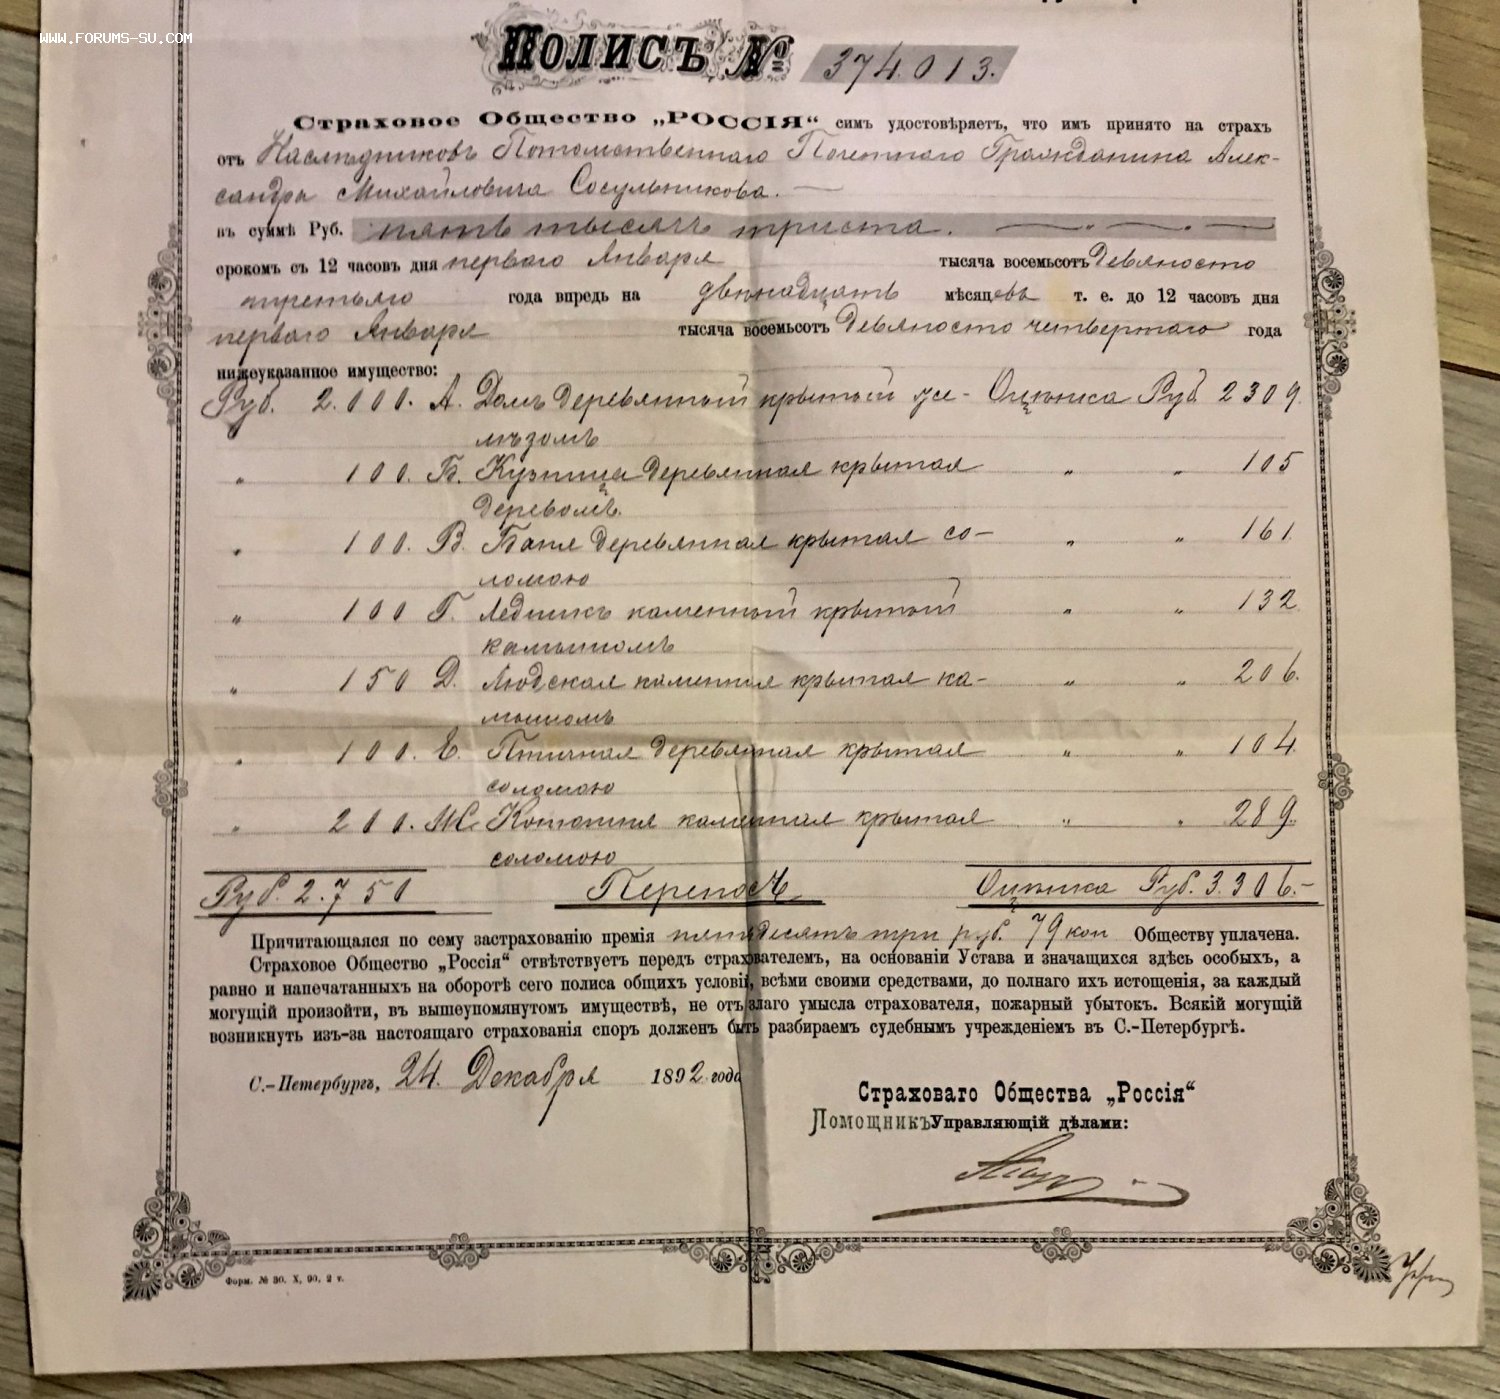 WWW.FORUMS-SU.COM
Полисъ № 374.013.
Страховое Общество „РОССІЯ“ симъ удостовѣряетъ, что имъ принято на страхъ
отъ Наслѣдниковъ Потомственнаго Почетнаго Гражданина Алек-
сандра Михайловича Сосульникова.
въ суммѣ Руб. пять тысячъ триста.
срокомъ съ 12 часовъ дня перваго Января тысяча восемьсотъ девяносто
третьяго года впредь на двѣнадцать мѣсяцевъ т. е. до 12 часовъ дня
перваго Января тысяча восемьсотъ девяносто четвертаго года
нижеуказанное имущество:
Руб. 2.000. А. Домъ деревянный крытый же- Оцѣнка Руб 2309.
лѣзомъ
„ 100. Б. Кузница деревянная крытая „ „ 105
деревомъ.
„ 100. В. Баня деревянная крытая со- „ „ 161.
ломою
„ 100 Г. Ледникъ каменный крытый „ „ 132.
камышомъ
„ 150 Д. Людская каменная крытая ка- „ „ 206.
мышомъ
„ 100. Е. Птичная деревянная крытая „ „ 104.
соломою
„ 200. Ж. Конюшня каменная крытая „ „ 289.
соломою
Руб. 2.750 Переносъ Оцѣнка Руб. 3.306.-
Причитающаяся по сему застрахованію премія пятьдесятъ три руб. 79 коп Обществу уплачена.
Страховое Общество „Россія“ отвѣтствуетъ передъ страхователемъ, на основаніи Устава и значащихся здѣсь особыхъ, а
равно и напечатанныхъ на оборотѣ сего полиса общихъ условій, всѣми своими средствами, до полнаго ихъ истощенія, за каждый
могущій произойти, въ вышеупомянутомъ имуществѣ, не отъ злаго умысла страхователя, пожарный убытокъ. Всякій могущій
возникнуть изъ-за настоящаго страхованія споръ долженъ быть разбираемъ судебнымъ учрежденіемъ въ С.-Петербургѣ.
С.-Петербургъ, 24. Декабря 1892 года
Страховаго Общества „Россія“
Помощникъ Управляющій дѣлами:
Форм. № 30. X, 90, 2 т.